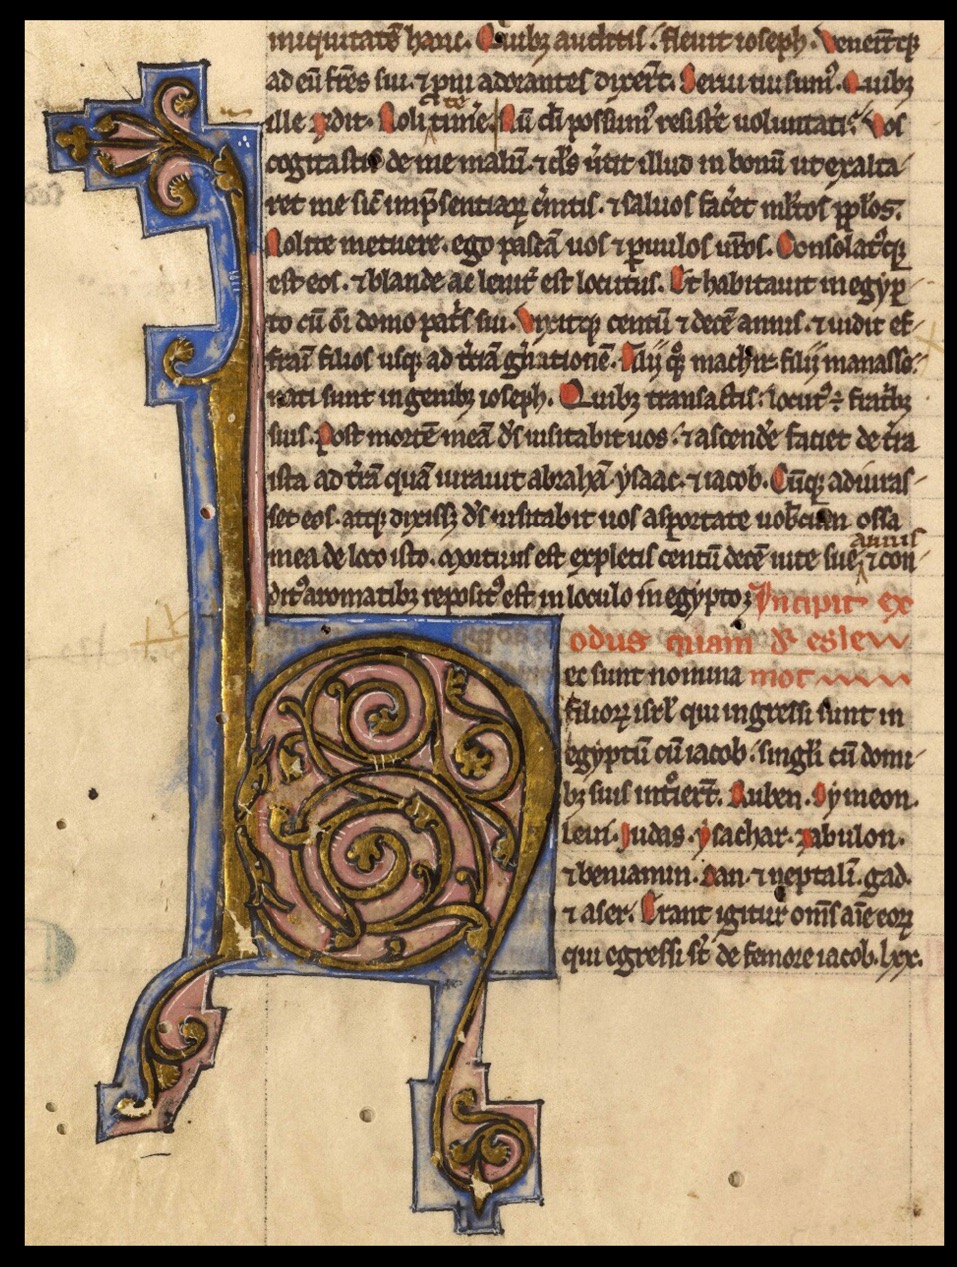 iniquitatē hanc. Quibꝫ auditis: fleuit ioseph. Veneer̄tqꝫ
ad eū fr̄es sui. ⁊ p̄ni adorantes dixer̄t. Serui tui sumꝰ. Quibꝫ
ille r̄ndit. Nolite timẽ. Nū d̄i possumꝰ resistẽ uoluntati: Vos
cogitastis de me malū. ⁊ d̄s ũtit illud in bonū ut exalta
ret me sic̄ imp̄sentiaꝝ c̃nitis. ⁊ saluos fac̃et ml̃tos pp̄los.
Nolite metuere. ego pascā uos ⁊ ꝑuulos ur̄os. Consolatꝰqꝫ
est eos. ⁊ blande ac lenit̃ est locutus. Et habitauit in egyp
to cū om̄i domo pat̃s sui. Vixitqꝫ centū ⁊ decē annis. ⁊ uidit ef
fraī filios usqꝫ ad t̃tiā gñationē. Filij qͦꝫ machir filij manasse.
nati sunt in genibꝫ ioseph. Quibꝫ transactis: locutꝰ ÷ frat̃bꝫ
suis. Post mortē meā d̄s uisitabit uos: ⁊ ascendẽ faciet de t̃ra
ista ad t̃rā quā iurauit abrahā. ysaac. ⁊ iacob. Cūqꝫ adiuras
set eos. atqꝫ dixissꝫ d̄s uisitabit uos asportate uobcum ossa
mea de loco isto. mortuus est expletis centū decē uite sue annis ⁊ con
ditꝰ aromatibꝫ repositꝰ est in loculo in egypto; Incipit ex
odus quam d̃r eslew
ec sunt nomina mot
filioꝝ isr̄l qui ingressi sunt in
egyptū cū iacob. singl̃i cū domi
bꝫ suis int̃oier̄t. Ruben. Symeon.
leui. Judas. ysachar. zabulon.
⁊ beniamin. Dan. ⁊ neptalī. gad.
⁊ aser. Erant igitur om̄s aīe eoꝝ
qui egressi st̄ de femore iacob. lxx.